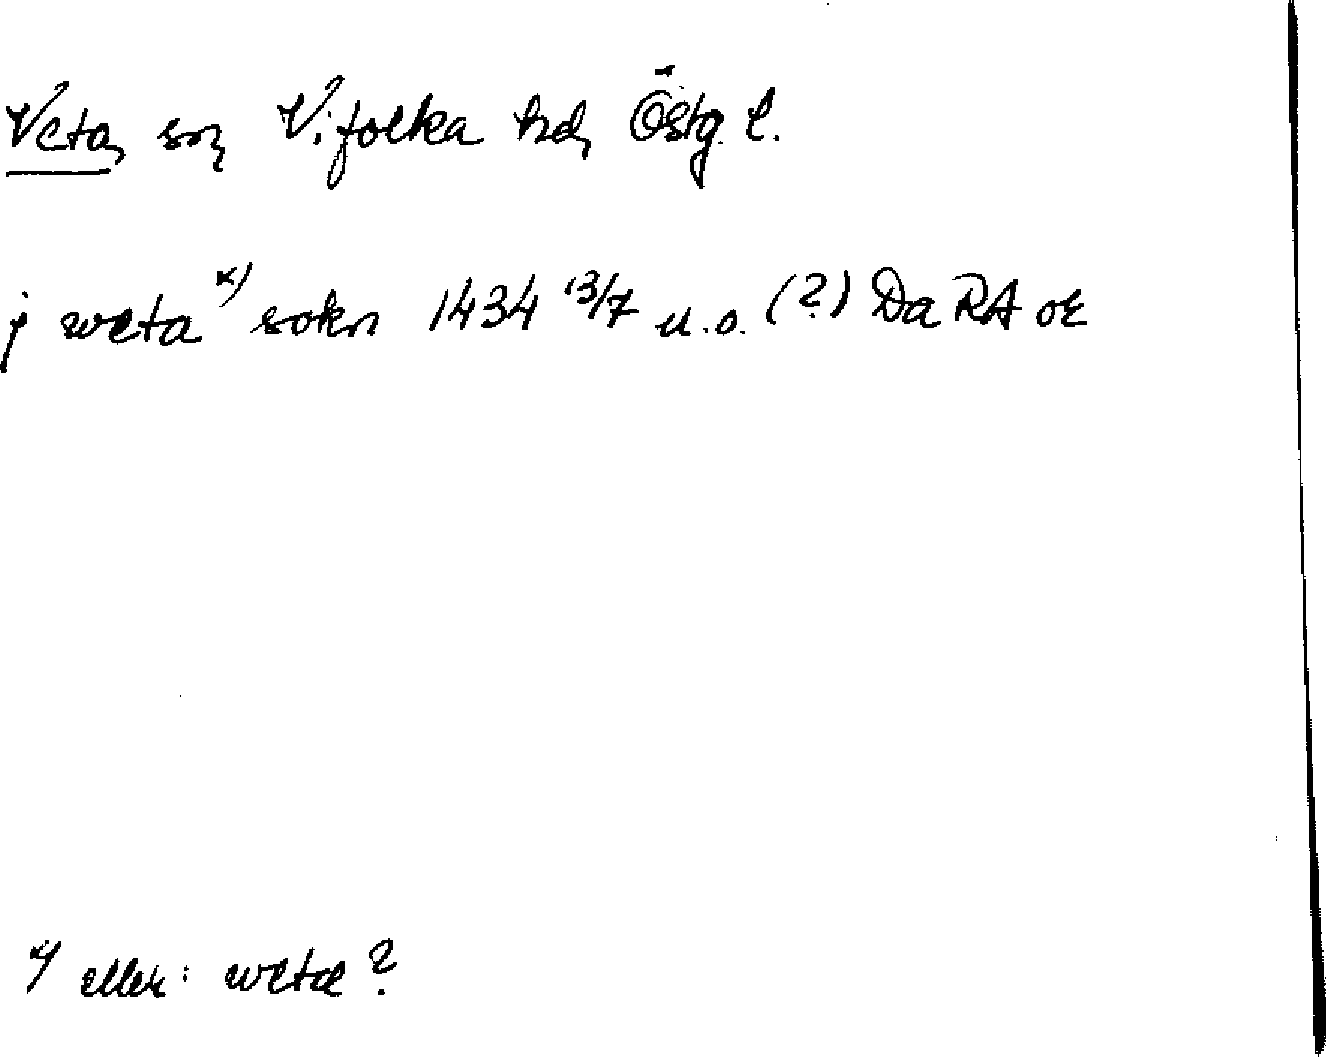 Veta, sn, Vifolka hd, Östg. l.
j weta x) sokn 1434 13/7 u.o. (?) Da RA or
x) eller: wetæ?